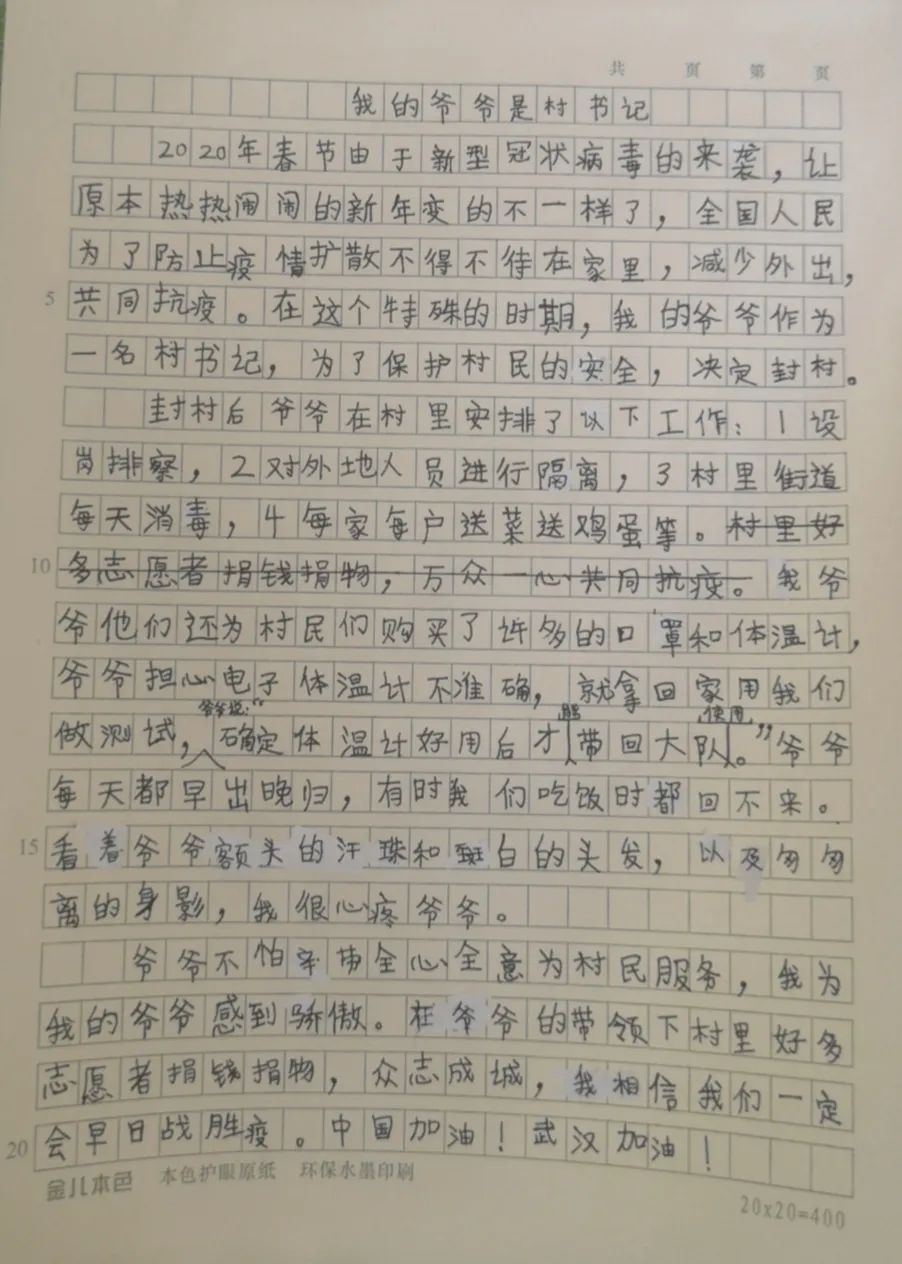 共 页 第 页
我的爷爷是村书记
2020年春节由于新型冠状病毒的来袭，让
原本热热闹闹的新年变的不一样了，全国人民
为了防止疫情扩散不得不待在家里，减少外出，
5 共同抗疫。在这个特殊的时期，我的爷爷作为
一名村书记，为了保护村民的安全，决定封村。
封村后爷爷在村里安排了以下工作：1设
岗排察，2对外地人员进行隔离，3村里街道
每天消毒，4每家每户送菜送鸡蛋等。村里好
10 多志愿者捐钱捐物，万众一心共同抗疫。我爷
爷他们还为村民们购买了许多的口罩和体温计，
爷爷担心电子体温计不准确，就拿回家用我们
爷爷说：“ 能 使用
做测试，确定体温计好用后才带回大队。”爷爷
每天都早出晚归，有时我们吃饭时都回不来。
15 看着爷爷额头的汗珠和斑白的头发，以及匆匆
离的身影，我很心疼爷爷。
爷爷不怕辛劳全心全意为村民服务，我为
我的爷爷感到骄傲。在爷爷的带领下村里好多
志愿者捐钱捐物，众志成城，我相信我们一定
20 会早日战胜疫。中国加油！武汉加油！
金儿本色 本色护眼原纸 环保水墨印刷
20x20=400